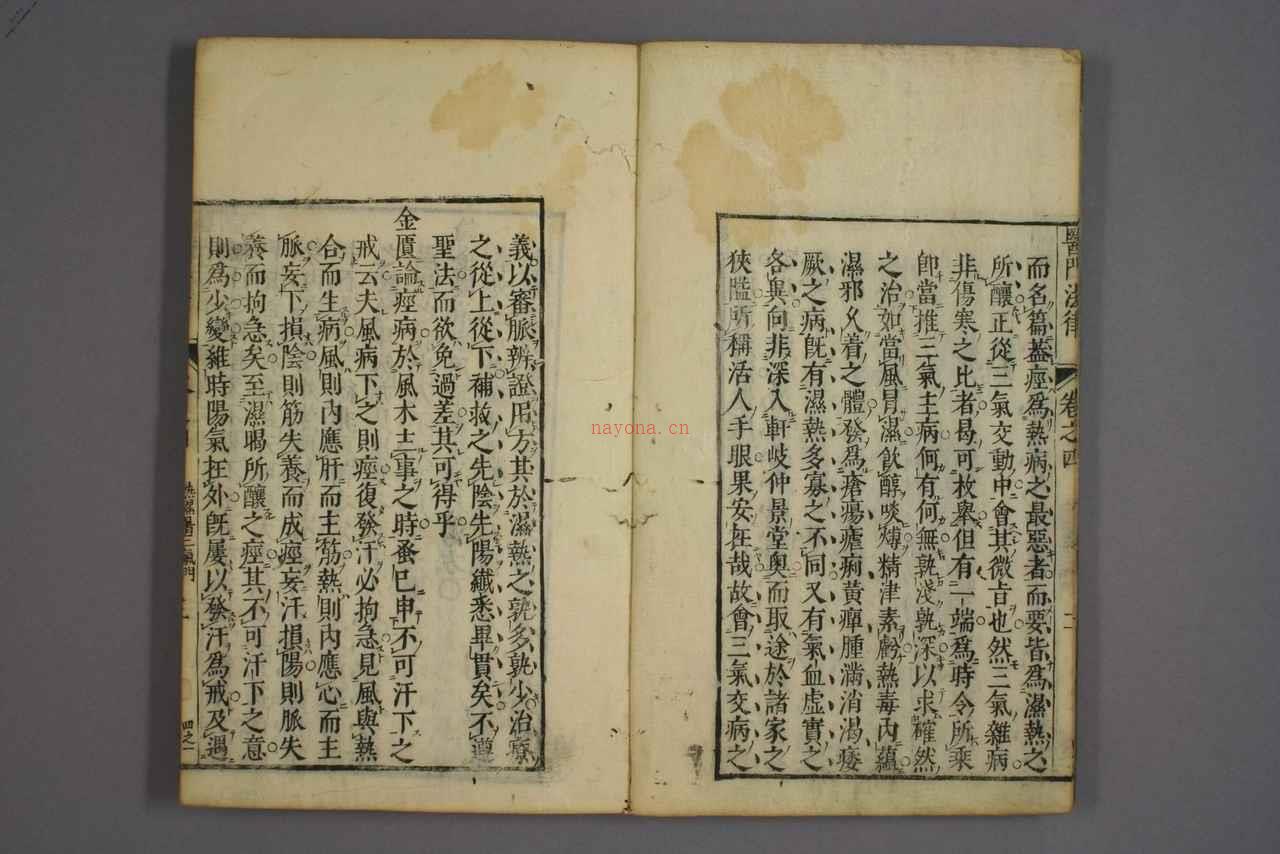 醫門法律
卷之四
而名篇蓋痙爲熱病之最惡者而要皆爲濕熱之
所釀正從三氣交動中會其微旨也然三氣雜病
非傷寒之比者曷可枚舉但有一端爲時令所乘
卽當推三氣主病何有何無孰淺孰深以求確然
之治如當風冐濕飲醇啖煿精津素虧熱毒內蘊
濕邪久着之體發爲瘡瘍瘧痢黃癉腫滿消渴痿
厥之病旣有濕熱多寡之不同又有氣血虛實之
各異向非深入軒岐仲景堂奧而取途於諸家之
狹隘所稱活人手眼果安在哉故會三氣交病之
nayona.cn
義以審脈辨證用方其於濕熱之孰多孰少治療
之從上從下補救之先陰先陽纖悉畢貫矣不遵
聖法而欲免過差其可得乎
金匱論痙病於風木主事之時蚤已申不可汗下之
戒云夫風病下之則痙復發汗必拘急見風與熱
合而生病風則內應肝而主筋熱則內應心而主
脈妄下損陰則筋失養而成痙妄汗損陽則脈失
養而拘急矣至濕暍所釀之痙其不可汗下之意
則爲少變維時陽氣在外旣屢以發汗爲戒及遇
熱濕暑三氣門
四之一